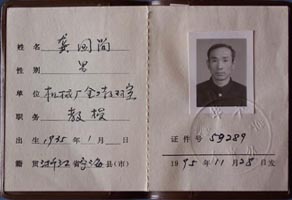 姓名 龚国尚
性别 男
单位
职务 教授
出生 1935年1月 日
籍贯 浙江省 县(市)
证件号 59289
1995年11月28日发